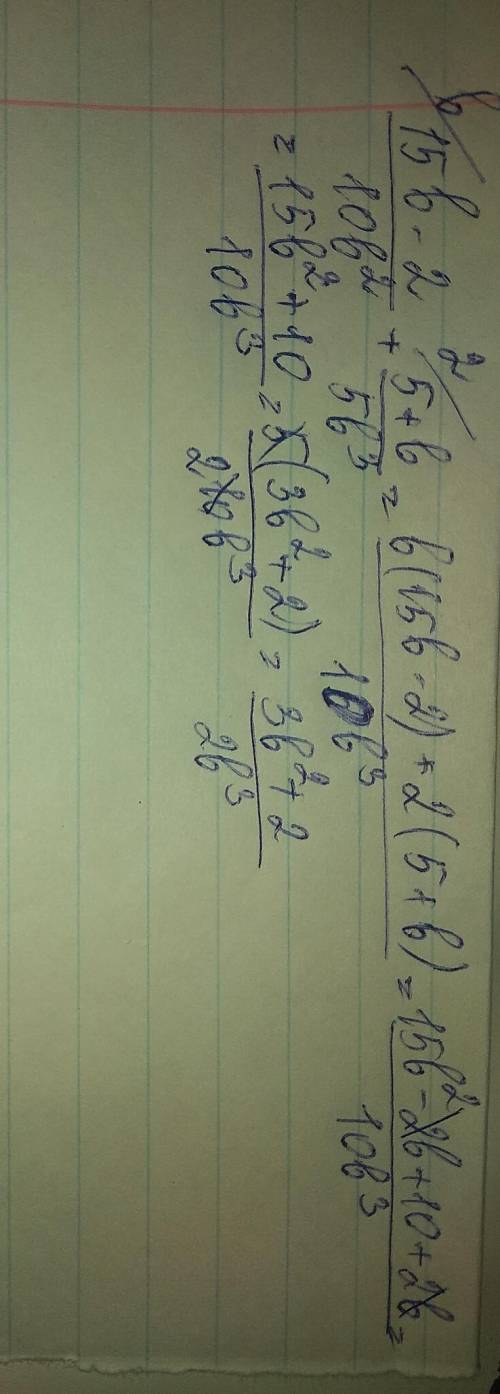 b⟍ (15b - 2)/(10b²) + 2⟍ (5 + b)/(5b³) = (b(15b - 2) + 2(5 + b))/(10b³) = (15b² - 2b + 10 + 2b)/(10b³) =
= (15b² + 10)/(10b³) = (5(3b² + 2))/(2 10b³) = (3b² + 2)/(2b³)